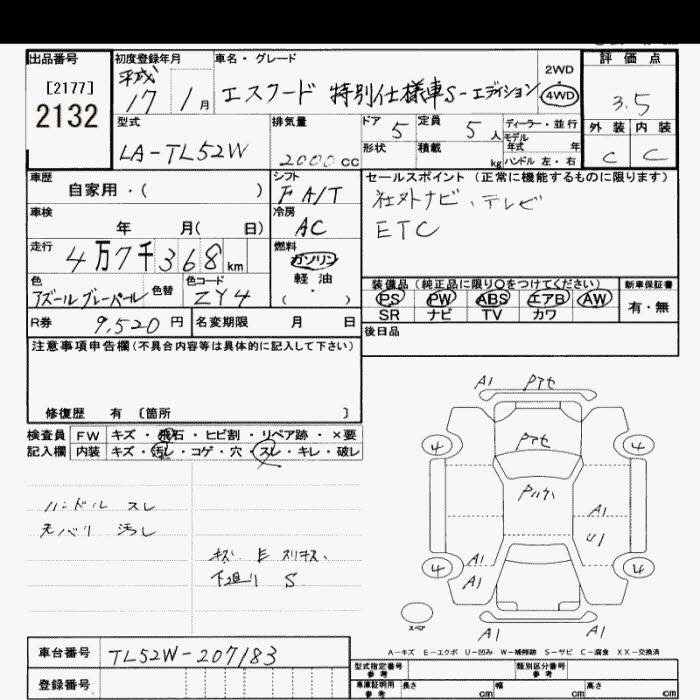 出品番号
[2177]
2132
初度登録年月
平成
17 1月
車名・グレード
エスクード 特別仕様車S-エディション
2WD
4WD
評価点
3.5
外装 内装
C C
型式
LA-TL52W
排気量
2000cc
ドア 5
定員 5人
形状
積載 kg
ディーラー・並行
モデル年式 年
ハンドル 左・右
車歴
自家用・( )
シフト
F A/T
セールスポイント (正常に機能するものに限ります)
社外ナビ、テレビ
ETC
車検
年 月( 日)
冷房
AC
走行
4万7千368km
燃料
ガソリン
軽油
( ・ )
色
アズールグレーパール
色替
色コード
ZY4
装備品 (純正品に限り○をつけてください)
PS PW ABS エアB AW
SR ナビ TV カワ
新車保証書
有・無
R券
9,520円
名変期限 月 日
後日品
注意事項申告欄(不具合内容等は具体的に記入して下さい)
修復歴 有 〔箇所 〕
検査員
記入欄
FW キズ・飛石・ヒビ割・リペア跡・×要
内装 キズ・汚レ・コゲ・穴・スレ・キレ・破レ
ハンドル スレ
汚レ
下廻り S
A1 Pアセ
4 Pアセ 4
A1
U1
4 A1 4
A1
スペア
A1 A1
A-キズ E-エクボ U-凹み W-補修跡 S-サビ C-腐食 XX-交換済
車台番号
TL52W-207183
登録番号
型式指定番号
参考
類別区分番号
参考
車庫証明用
参考
長さ cm
幅 cm
高さ cm